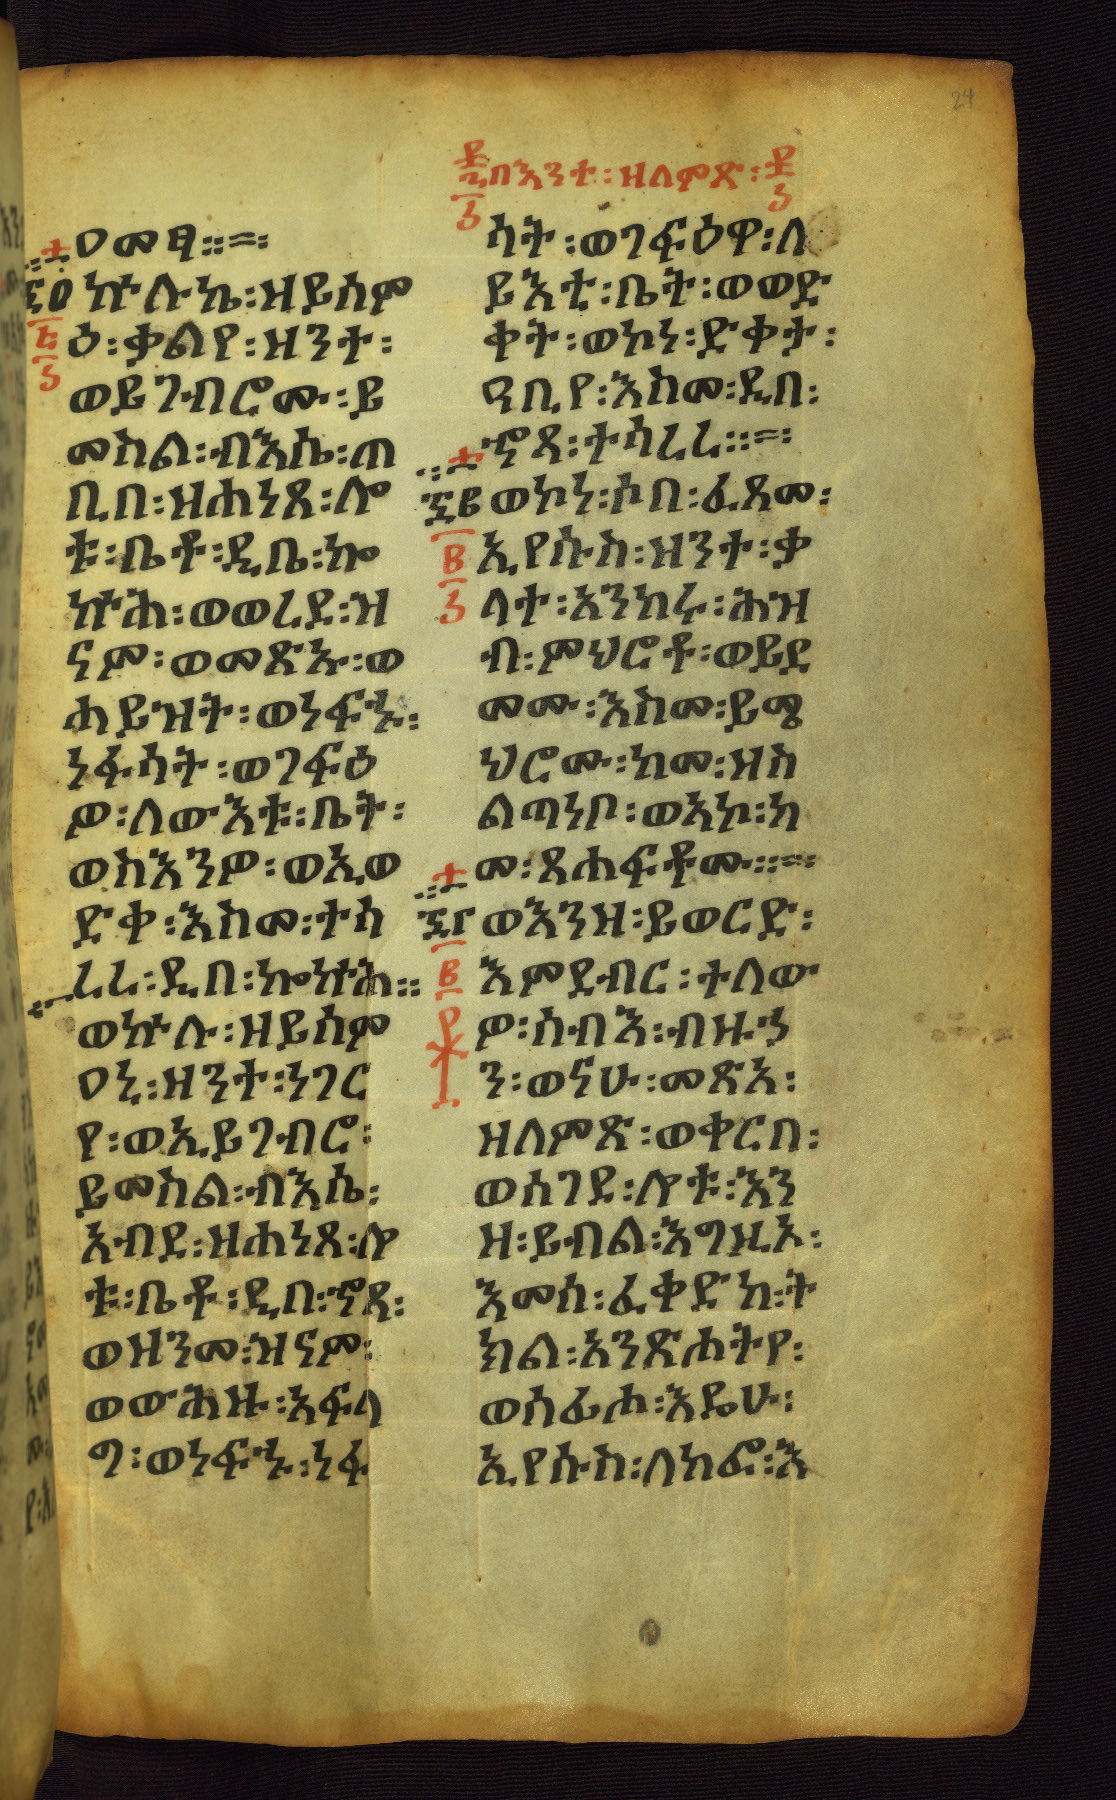 24
በእንተ፡ ዘለምጽ፡
ዐመፃ።=፡
ኵሉኬ፡ ዘይሰም
ዕ፡ ቃልየ፡ ዘንተ፡
ወይገብሮሙ፡ ይ
መስል፡ ብእሴ፡ ጠ
ቢበ፡ ዘሐነጸ፡ ሎ
ቱ፡ ቤቶ፡ ዲቤ፡ ኰ
ኵሕ፡ ወወረደ፡ ዝ
ናም፡ ወመጽኡ፡ ወ
ሓይዝት፡ ወነፍኁ፡
ነፋሳት፡ ወገፍዕ
ዎ፡ ለውእቱ፡ ቤት፡
ወስእንዎ፡ ወኢወ
ድቀ፡ እስመ፡ ተሳ
ረረ፡ ዲበ፡ ኰኵሕ።
ወኵሉ፡ ዘይሰም
ዐኒ፡ ዘንተ፡ ነገር
የ፡ ወኢይገብሮ፡
ይመስል፡ ብእሴ፡
አብደ፡ ዘሐነጸ፡ ሎ
ቱ፡ ቤቶ፡ ዲበ፡ ኆጻ፡
ወዘንመ፡ ዝናም፡
ወውሕዙ፡ አፍላ
ግ፡ ወነፍኁ፡ ነፋ
ሳት፡ ወገፍዕዋ፡ ለ
ይእቲ፡ ቤት፡ ወወድ
ቀት፡ ወኮነ፡ ድቀታ፡
ዓቢየ፡ እስመ፡ ዲበ፡
ኆጻ፡ ተሳረረ።=፡
፳፪ ወኮነ፡ ሶበ፡ ፈጸመ፡
ኢየሱስ፡ ዘንተ፡ ቃ
ላተ፡ አንከሩ፡ ሕዝ
ብ፡ ምህሮቶ፡ ወይደ
መሙ፡ እስመ፡ ይሜ
ህሮሙ፡ ከመ፡ ዘስ
ልጣነቦ፡ ወአኮ፡ ከ
መ፡ ጸሐፍቶሙ።=፡
፳፫ ወእንዘ፡ ይወርድ፡
እምደብር፡ ተለው
ዎ፡ ሰብእ፡ ብዙኃ
ን፡ ወናሁ፡ መጽአ፡
ዘለምጽ፡ ወቀርበ፡
ወሰገደ፡ ሎቱ፡ እን
ዘ፡ ይብል፡ እግዚኦ፡
እመሰ፡ ፈቀድከ፡ ት
ክል፡ አንጽሖትየ፡
ወሰፊሖ፡ እዴሁ፡
ኢየሱስ፡ ለከፎ፡ እ